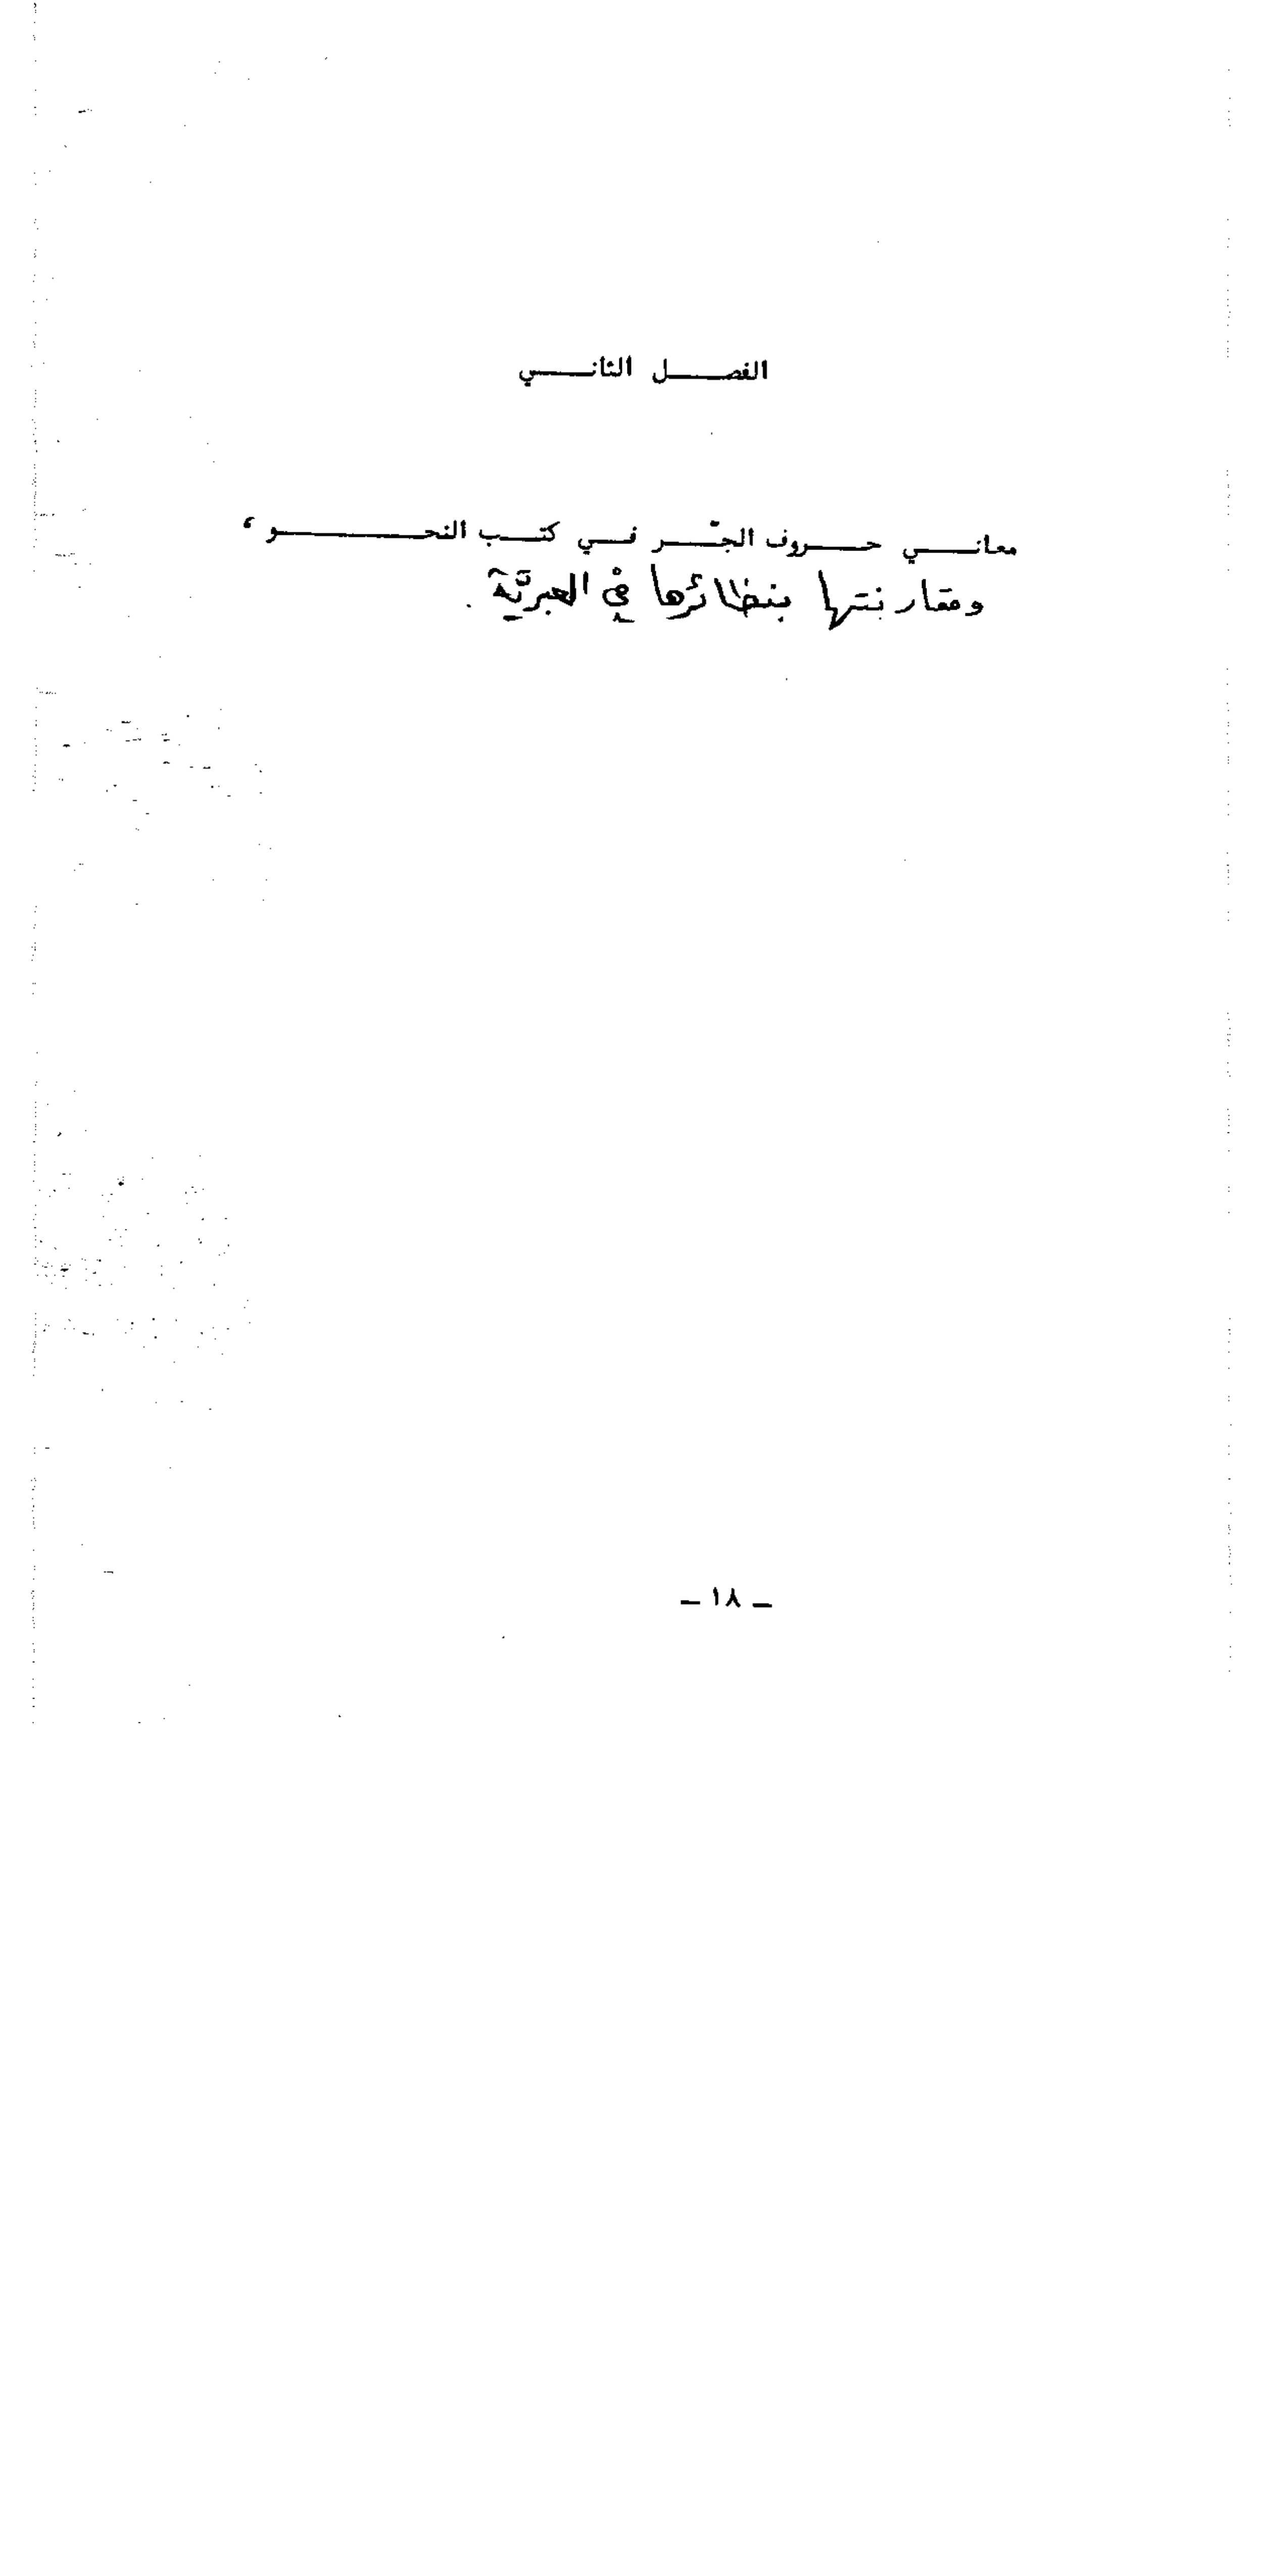 الفصل الثاني
معاني حروف الجّر في كتب النحو ،
ومقارنتها بنظائرها في العبريَّة .
– ١٨ –